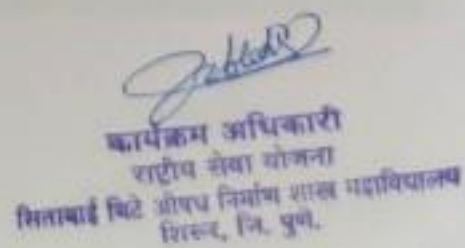 कार्यक्रम अधिकारी
राष्ट्रीय सेवा योजना
सिताबाई थिटे औषध निर्माण शास्त्र महाविद्यालय
शिरूर, जि. पुणे.